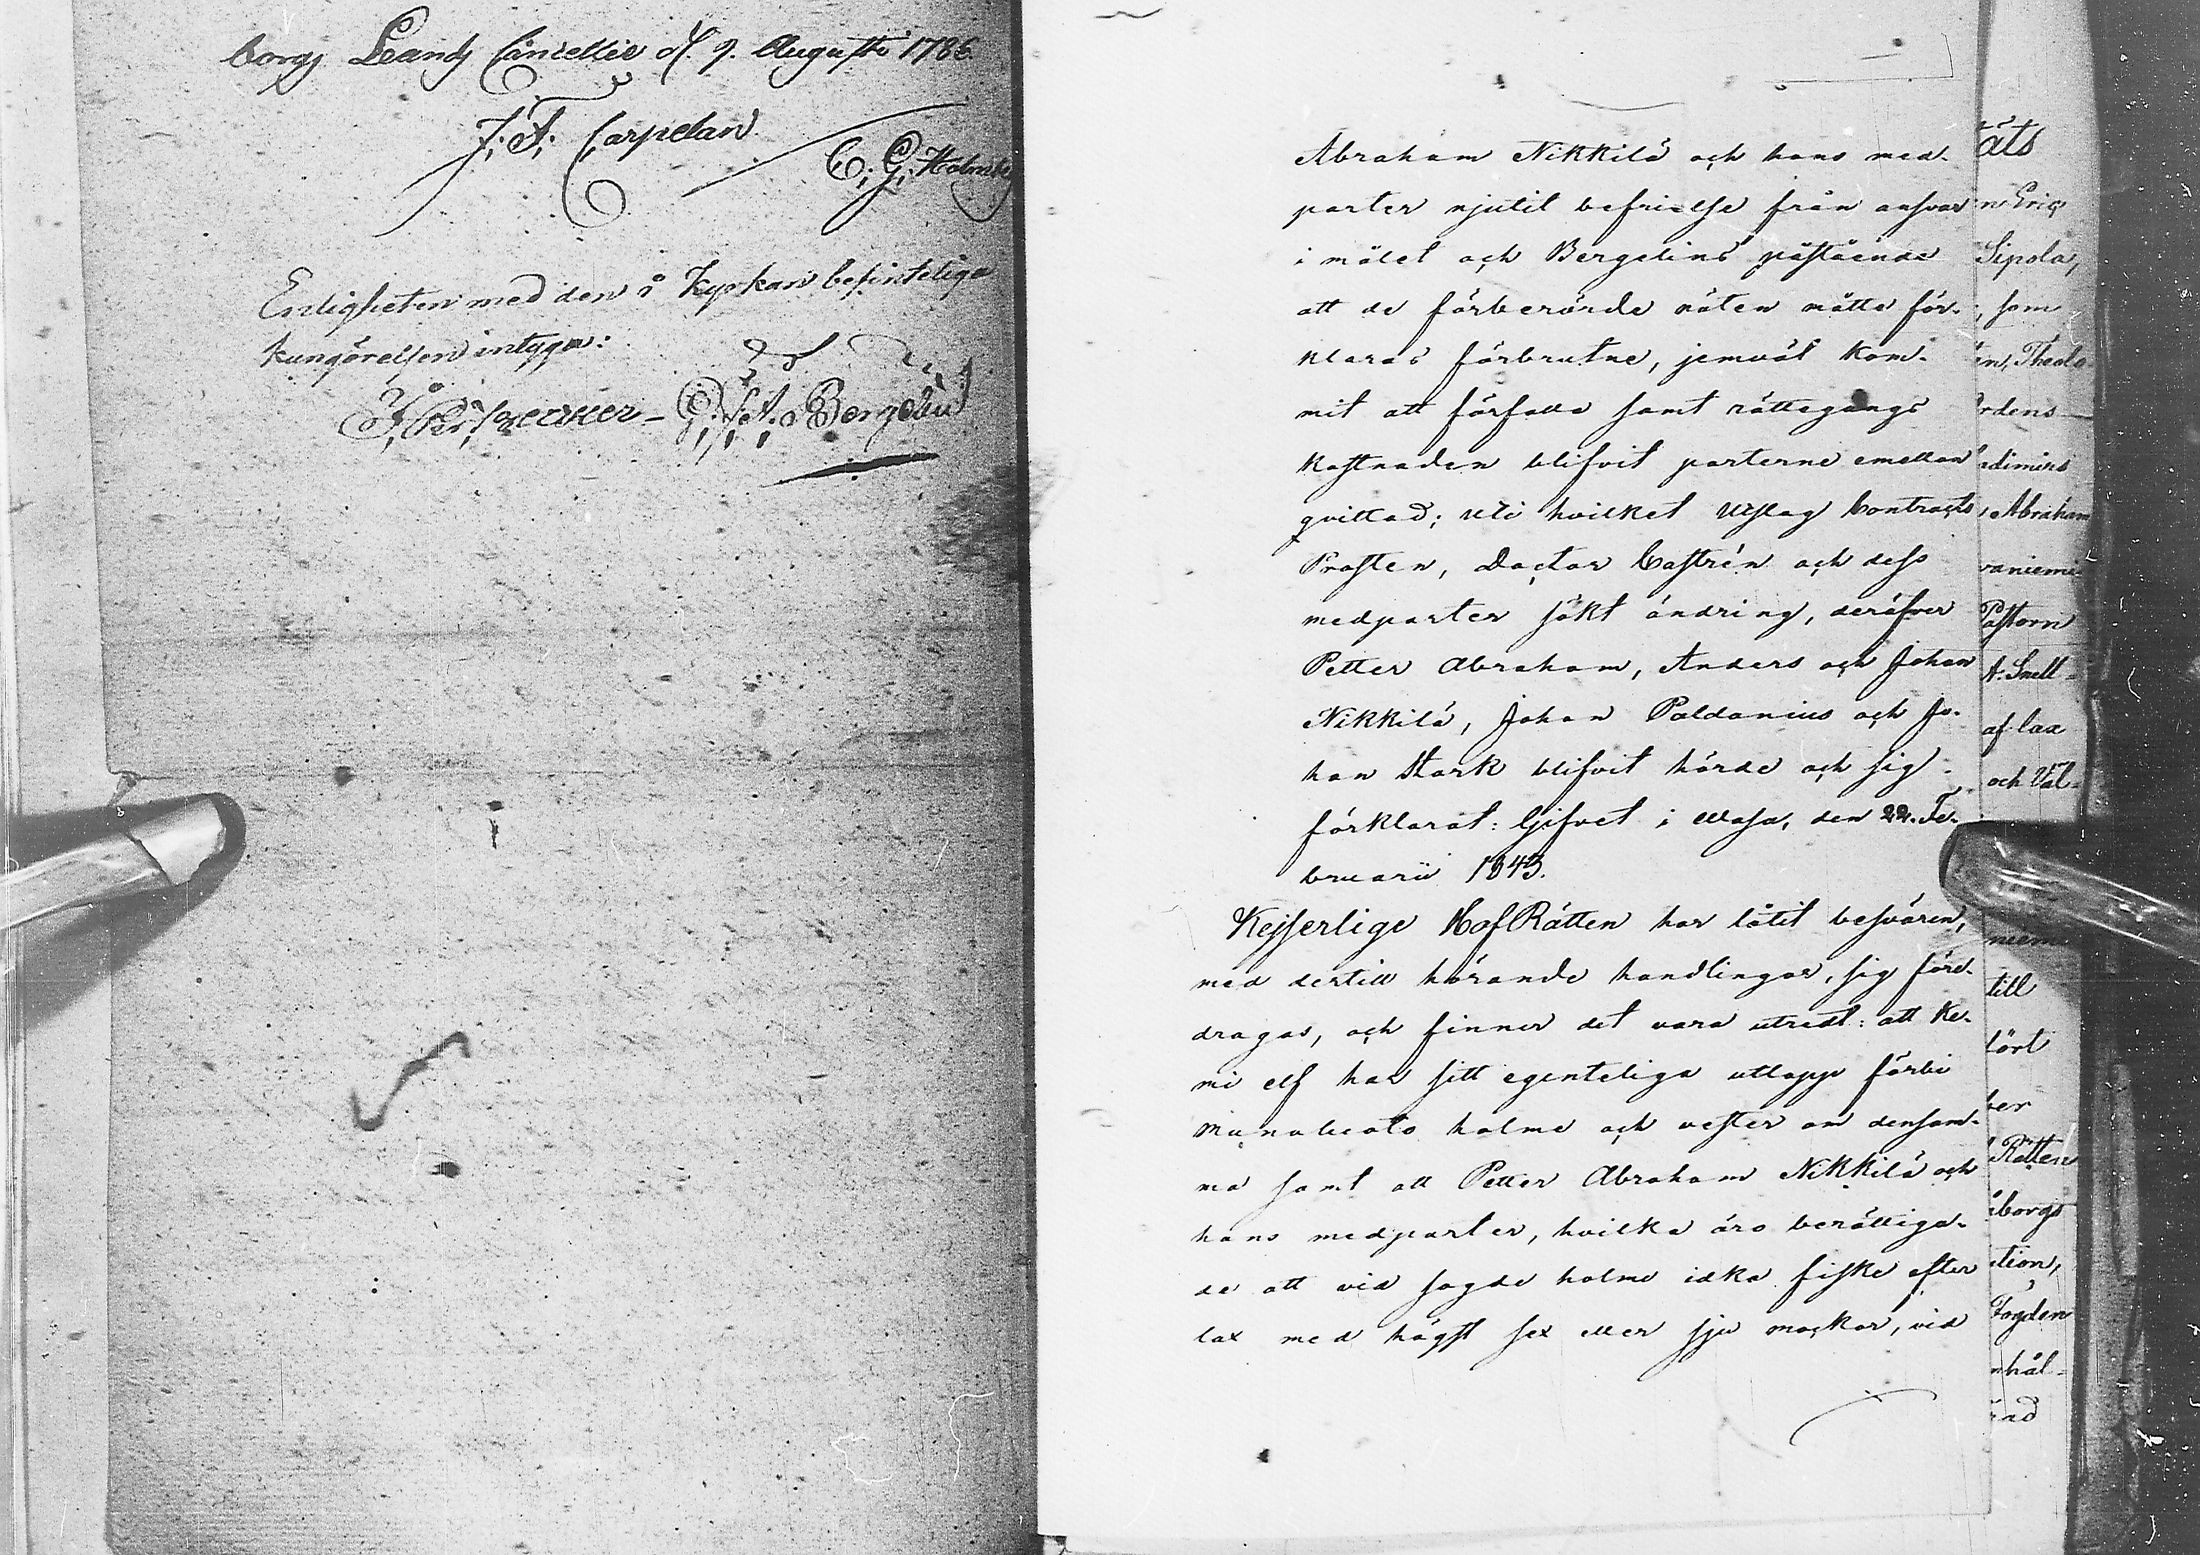 borgs Lands Cancellie d. 9. Augusti 1786
J; A; Carpelan
C; G; Holmbe
Enligheten med den i Kyrkan befinteliga
kungörelsen intyga:
Abraham Nikkilä och hans med-
parter njutit befrielse från ansvar
i målet och Bergelins påstående
att de förberörde näten måtte för-
klaras förbrutne, jemväl kom-
mit att förfalla samt rättegångs
kostnaden blifvit parterne emellan
qvittad; uti hvilket Utslag Contracts
Prosten, Doctor Castrén och dess
medparter sökt ändring, deröfver
Petter Abraham, Anders och Johan
Nikkilä, Johan Paldanius och Jo-
han Stark blifvit hörde och sig
förklarat: Gifvet i Wasa, den 22. Fe-
bruarii 1843.
Kejserlige HofRätten har låtit besvären,
med dertill hörande handlingar, sig före-
dragas, och finner det vara utredt: att Ke-
mi elf har sitt egenteliga utlopp förbi
Munakeats holme och vester om densam-
ma samt att Petter Abraham Nikkilä och
hans medparter, hvilka äro berättiga-
de att vid sagde holme idka fiske efter
lax med högst sex eller sju mockor, vid
äts
n Eric
Sipola,
, som
en, Theolo-
rdens
adimirs
, Abraham
vanieme-
Pastorn
A. Snell-
af lax
och Väl-
niem
till
fört
ber
Rätten
åborgs
ction,
Fogden
nhål-
rad